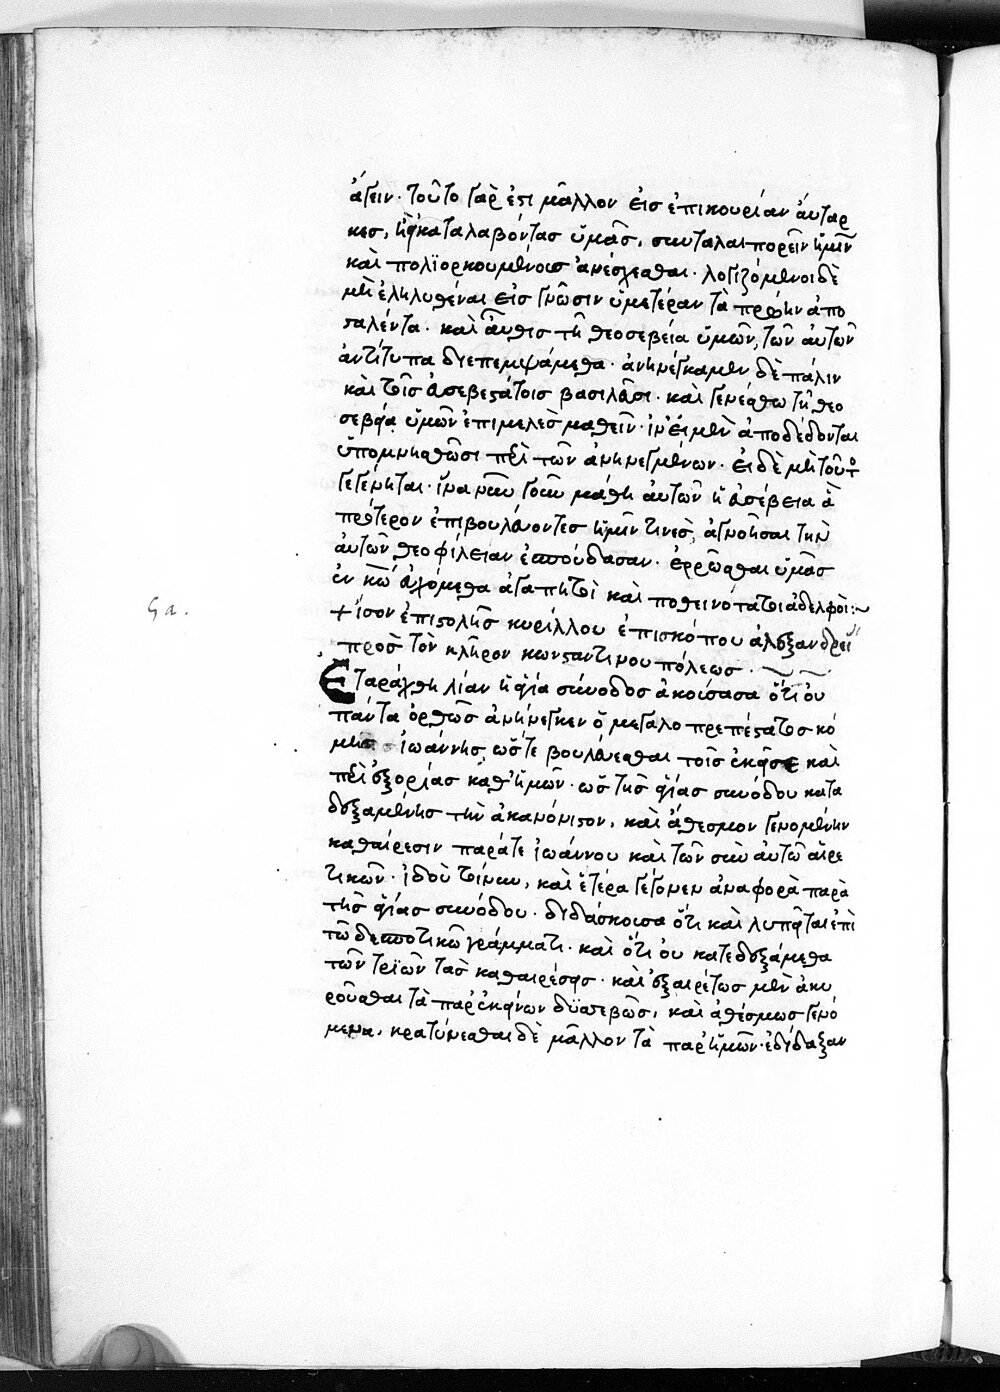 άγειν· τοῦτο γὰρ ἐστι μᾶλλον εἰς ἐπικουρίαν ἀύταρ
κες, ἢ καταλαβόντας ὑμᾶς, συνταλαιπορεῖν ἡμῖν
καὶ πολϊορκουμένοις ἀνέσχεσθαι· λογιζόμενοι δὲ
μὴ ἐληλυθέναι εἰς γνῶσιν ὑμετέραν τὰ πρώην ἀπο
σταλέντα· καὶ ἆυθις τῇ θεοσεβεία ὑμῶν, τῶν αὐτῶν
ἀντίτυπα διεπεμψάμεθα· ἀνηνέγκαμεν δὲ πάλιν
καὶ τοῖς ἀσεβεστάτοις βασιλεῦσι· καὶ γενέσθω τῇ θεο
σεβεία ὑμῶν ἐπιμελὲς μαθεῖν· ἵν' εἰ μὲν ἀποδέδονται
ὑπομνησθῶσι περὶ τῶν ἀνηνεγμένων· εἰ δὲ μὴ τοῦτο
γεγένηται· ἵνα νῦν γοῦν μάθη αὐτῶν ἡ ἀσέβεια ἃ
πρότερον ἐπιβουλέυοντες ἡμῖν τινὲς, ἀγνοῆσαι τὴν
ἀυτῶν θεοφίλειαν ἐσπούδασαν· ἐρρῶσθαι ὑμᾶς
ἐν κω ἐυχόμεθα ἀγαπητοὶ καὶ ποθεινότατοι ἀδελφοὶ:~
+ ἴσον ἐπιστολῆς κυρίλλου ἐπισκόπου ἀλεξανδρεί
πρὸς τὸν κλῆρον κωνσαντινουπόλεως·
Ἐταράχθη λίαν ἡ ἁγία σύνοδος ἀκούσασα ὅτι ὀυ
πάντα ὀρθῶς ἀνήνεγκεν ὁ μεγαλοπρεπέστατος κό
μης ἰωάννης, ὥστε βουλέυεσθαι τοῖς ἐκεῖσε καὶ
περὶ ἐξορίας καθ' ἡμῶν· ὡς τῆς ἁγίας συνόδου κατα
δεξαμένης τὴν ἀκανόνιστον, καὶ ἄθεσμον γενομένην
καθαίρεσιν παρά τε ἰωάννου καὶ τῶν σὺν αὐτῶ αἱρε
τικῶν· ἰδοὺ τοίνυν, καὶ ἑτέρα γέγονεν ἀναφορὰ παρὰ
τῆς ἁγίας συνόδου· διδάσκουσα ὅτι καὶ λυπεῖται ἐπὶ
τῶ δεσποτικῶ γράμματι· καὶ ὅτι ὀυ κατεδεξάμεθα
τῶν τριῶν τὰς καθαιρέσεις· καὶ ἐξαιρέτως μὲν ἀκυ
ροῦσθαι τὰ παρ' ἐκείνων δυσσεβῶς, καὶ ἀθέσμως γενό
μενα, κρατύνεσθαι δὲ μᾶλλον τὰ παρ' ἡμῶν· ἐδίδαξαν